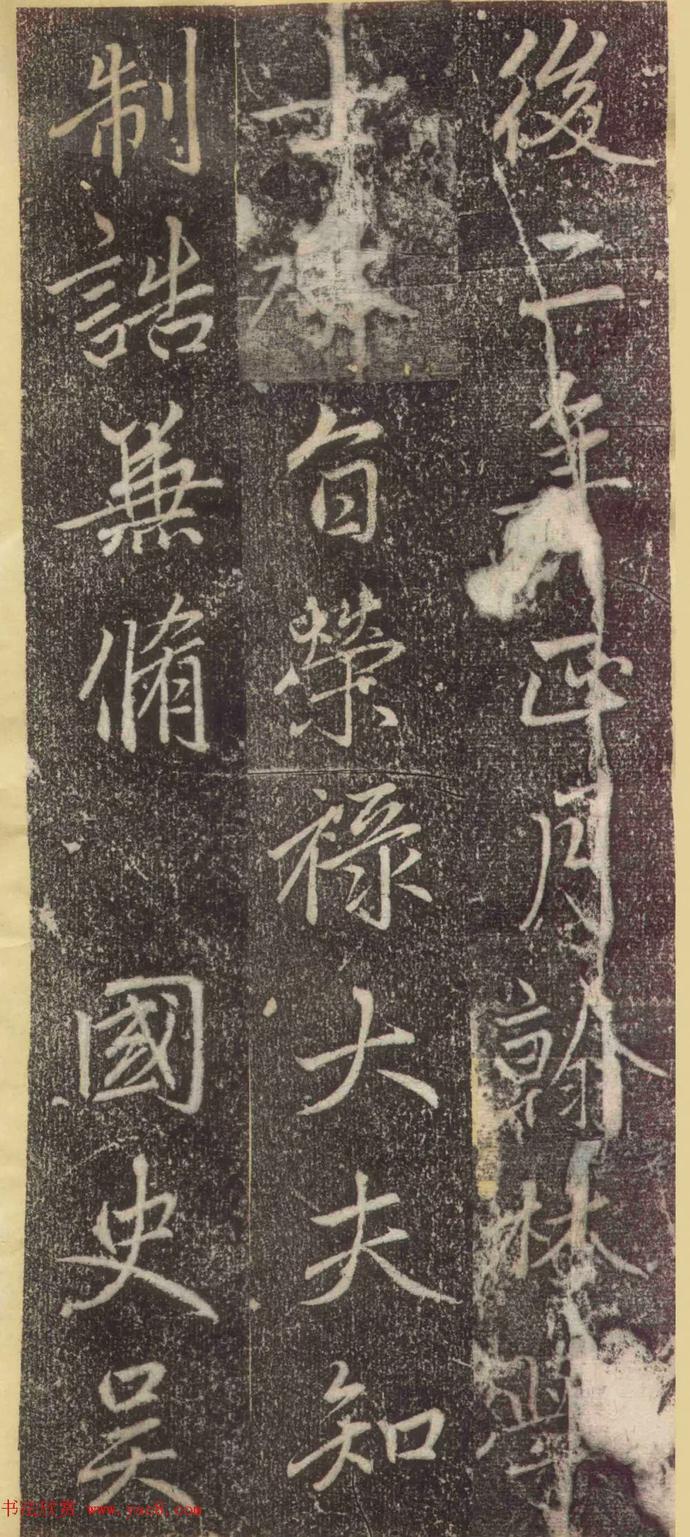 後二年正月翰林學
士承旨榮祿大夫知
制誥兼脩國史吳
书法欣赏 www.yac8.com